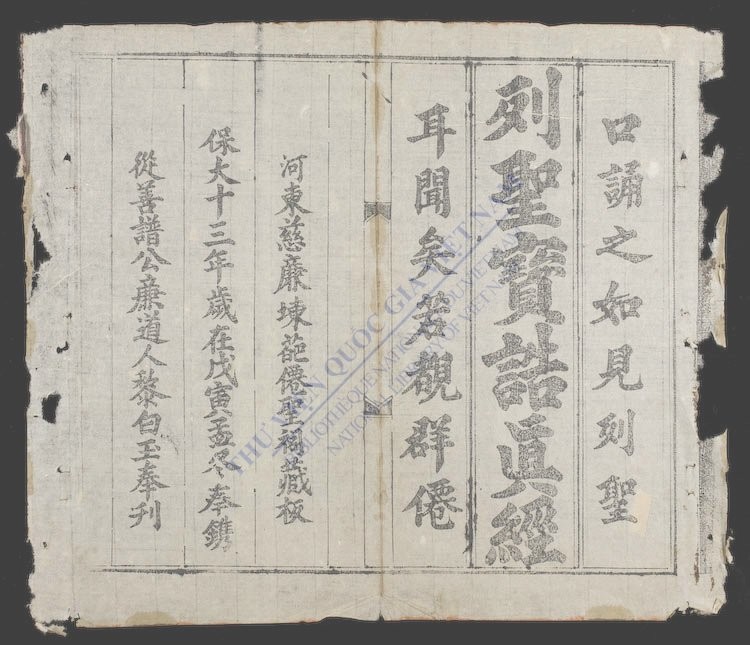 口誦之如見列聖
列聖寳誥眞經
耳聞矣若覩群僊
河東慈廉埬葩僊聖祠藏板
保大十三年歲在戊寅孟冬奉鐫
從善譜公廉道人黎白玉奉刊
THƯ VIỆN QUỐC GIA VIỆT NAM
BIBLIOTHEQUE NATIONALE DU VIETNAM
NATIONAL LIBRARY OF VIETNAM